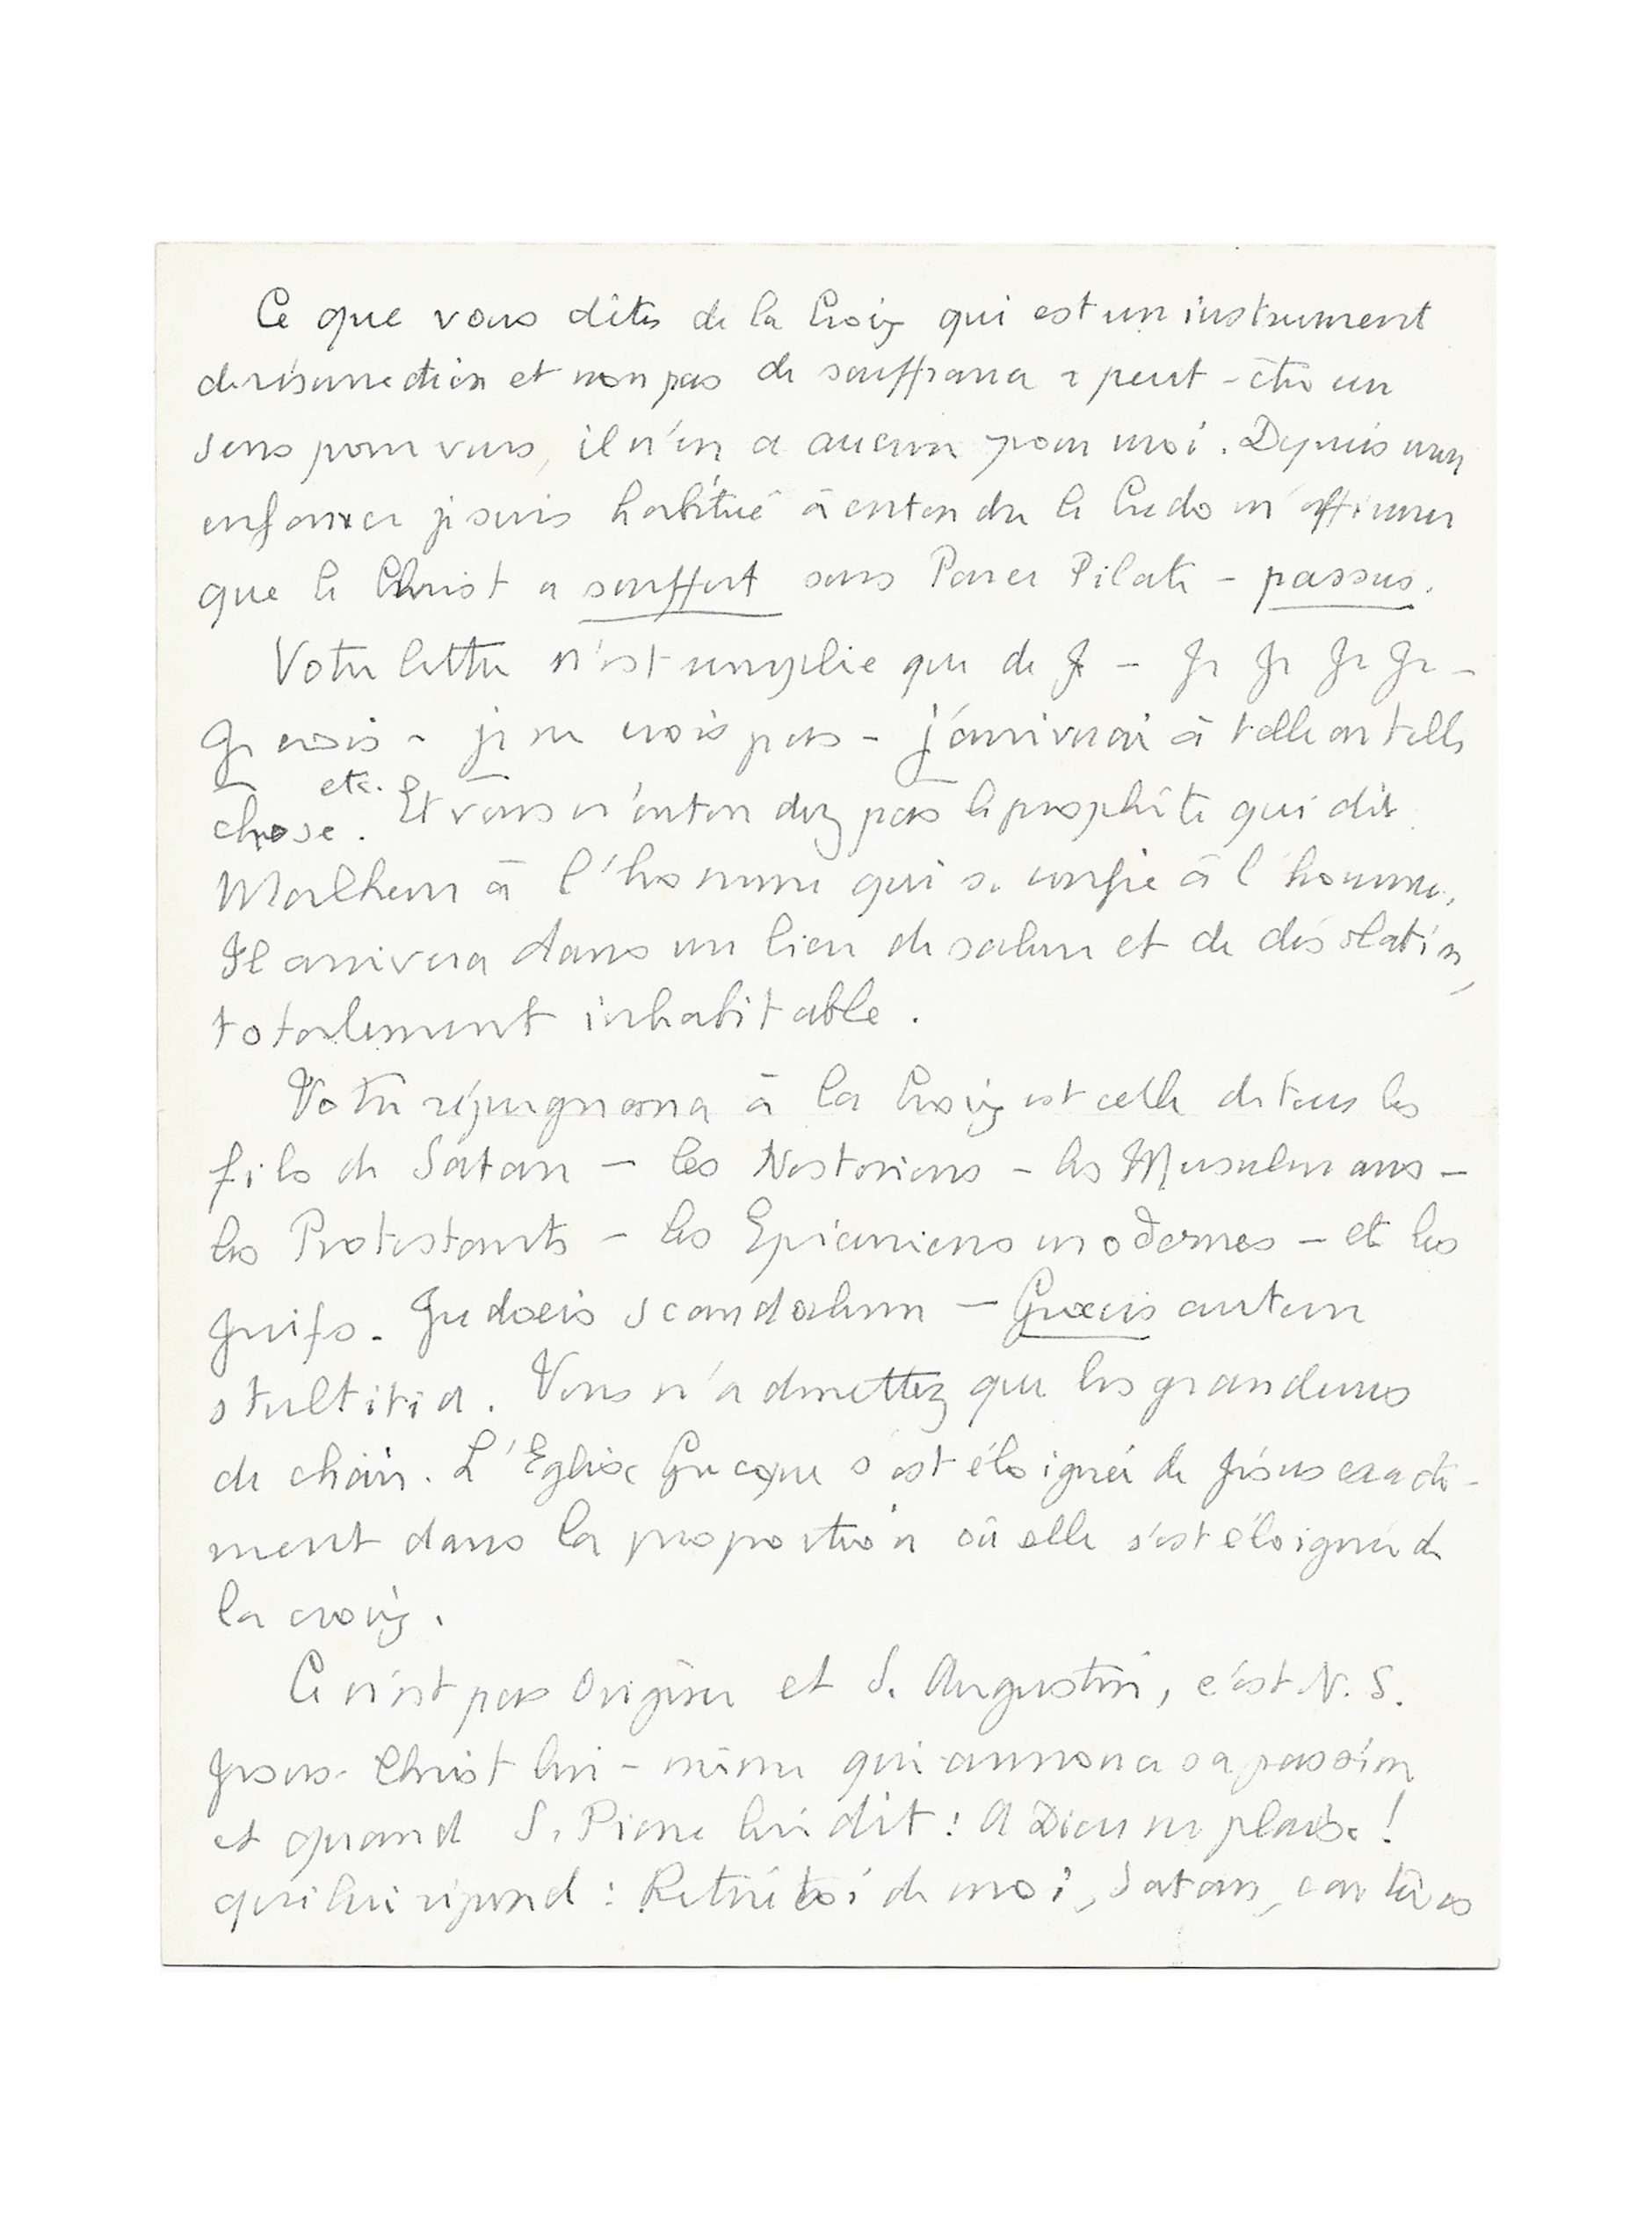 Ce que vous dîtes de la Croix qui est un instrument
de résurrection et non pas de souffrance a peut-être un
sens pour vous, il n'en a aucun pour moi. Depuis mon
enfance je suis habitué à entendre le Credo m'affirmer
que le Christ a souffert sous Ponce Pilate - passus.
Votre lettre n'est remplie que de Je - Je Je Je Je -
Je crois - je ne crois pas - j'arriverai à telle ou telle
chose. etc. Et vous n'entendez pas le prophète qui dit
Malheur à l'homme qui se confie à l'homme,
Il arrivera dans un lieu de salure et de désolation,
totalement inhabitable.
Votre répugnance à la Croix est celle de tous les
fils de Satan - les Nestoriens - les Musulmans -
les Protestants - les Epicuriens modernes - et les
Juifs. Judaeis scandalum - Graecis autem
stultitia. Vous n'admettez que les grandeurs
de chair. L'Eglise Grecque s'est éloignée de Jésus exacte-
ment dans la proportion où elle s'est éloignée de
la croix.
Ce n'est pas Origène et S. Augustin, c'est N. S.
Jésus-Christ lui-même qui annonce sa passion
et quand S. Pierre lui dit : A Dieu ne plaise !
qui lui répond : Retire toi de moi, Satan, car tu es